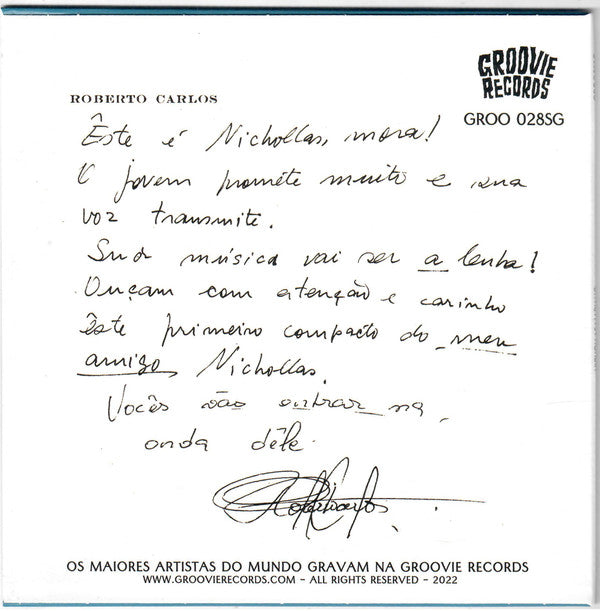 GROOVIE
RECORDS
GROO 028SG
ROBERTO CARLOS
Êste é Nichollas, mora!
O jovem promete muito e sua
voz transmite.
Sua música vai ser a lenha!
Ouçam com atenção e carinho
êste primeiro compacto do meu
amigo, Nichollas.
Vocês vão entrar na
onda dêle.
OS MAIORES ARTISTAS DO MUNDO GRAVAM NA GROOVIE RECORDS
WWW.GROOVIERECORDS.COM – ALL RIGHTS RESERVED – 2022